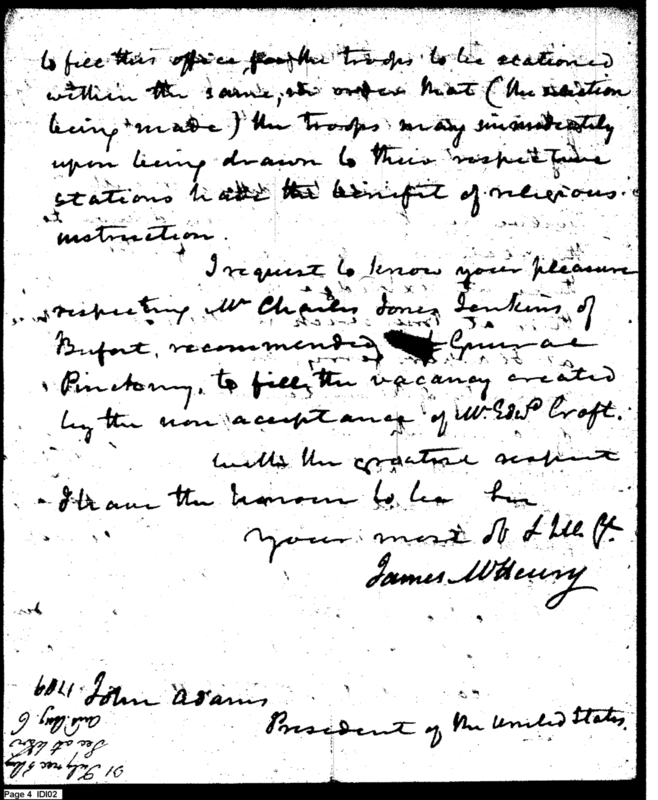 to fill this office for the troops to be stationed
within the same, in order that (the selection
being made) the troops may immediately
upon being drawn to their respective
stations have the benefit of religious
instruction.
I request to know your pleasure
respecting Mr Charles Jones Jenkins of
Bufort, recommended General
Pinckney, to fill the vacancy created
by the non acceptance of Mr. Edwd Croft.
With the greatest respect
I have the honour to be Sir
Your most ob
James McHenry
John Adams
President of the United States.
31 July rec 5 Aug
ansd Aug. 6
1799
Page 4 IDI02